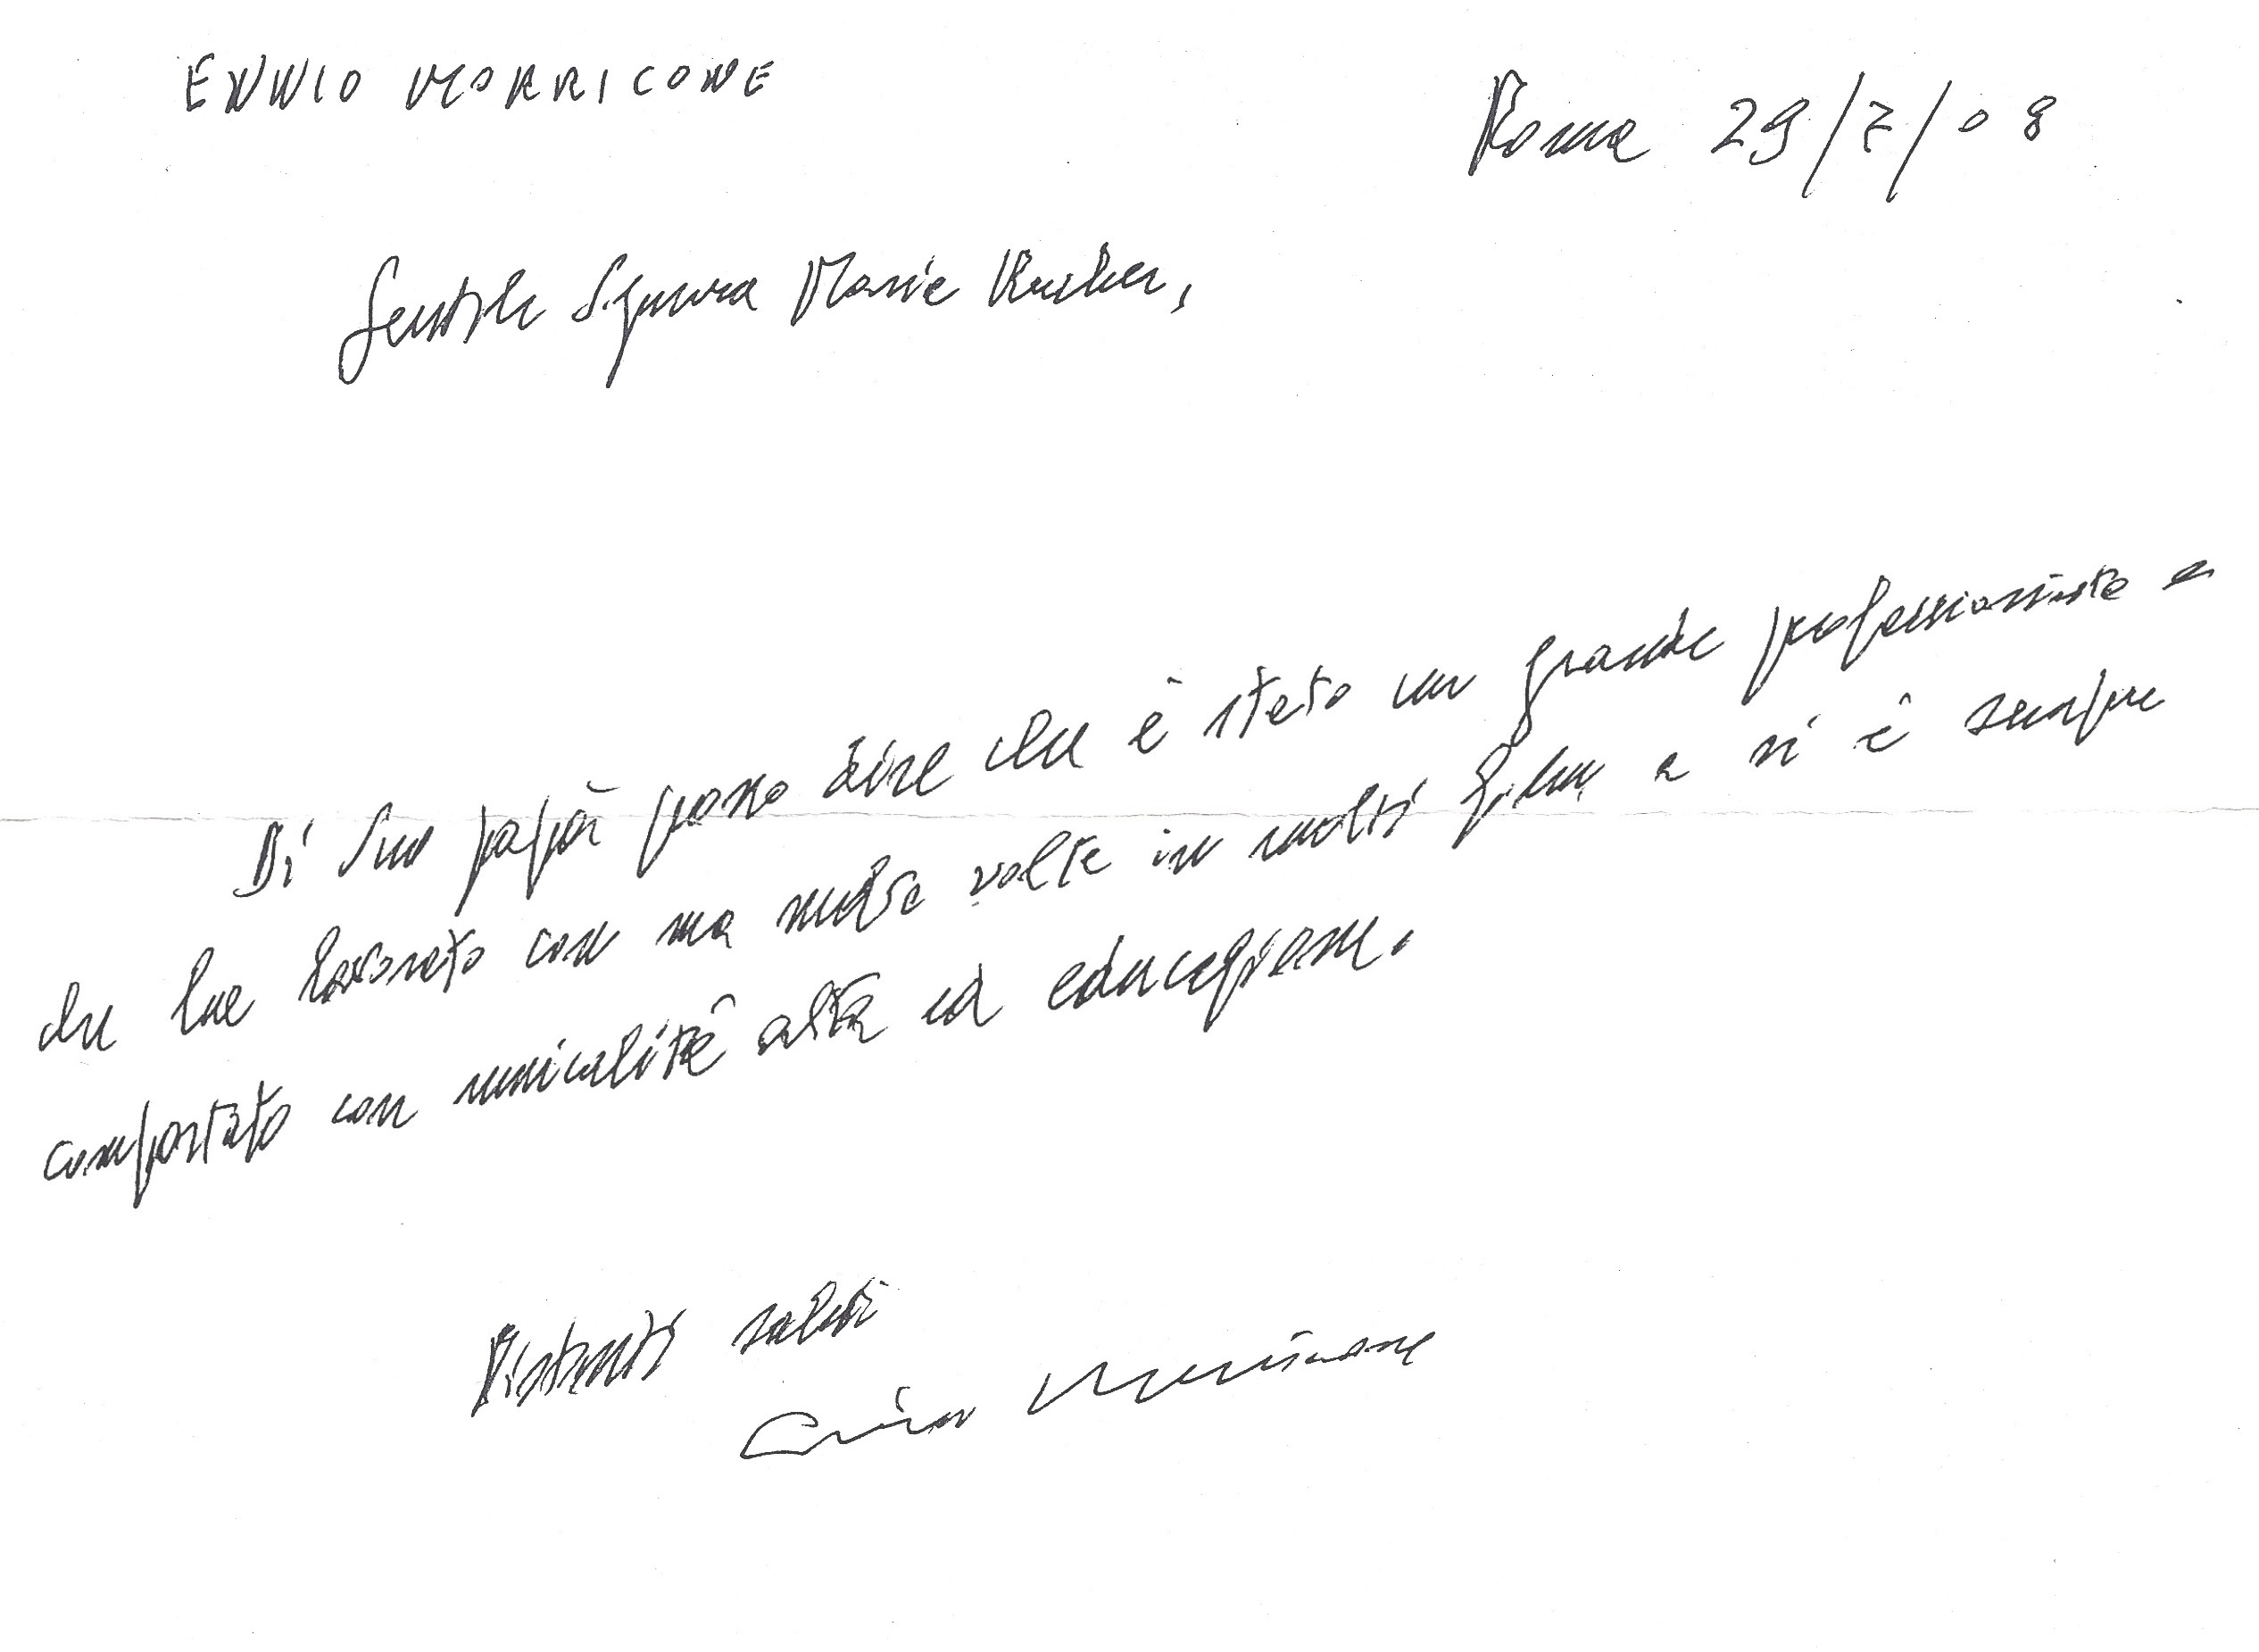 ENNIO MORRICONE
Roma 29/7/08
Gentile Signora Marie
Di Suo papà posso dire che è stato un grande professionista e
che ha lavorato con me molte volte in molti film e si è sempre
comportato con musicalità alta ed educazione.
Distinti saluti
Ennio Morricone